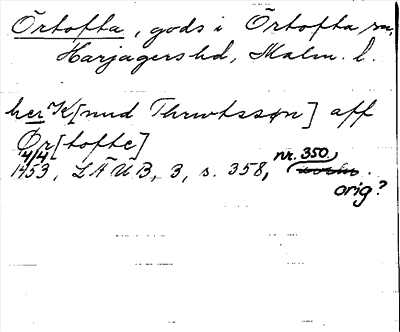 Örtofta, gods i Örtofta sn,
Harjagers hd, Malm. l.
her K[nud Thruvtssøn] aff
Ør[tofte]
4/4
1453, LÄUB, 3, s. 358, nr. 350
orig?